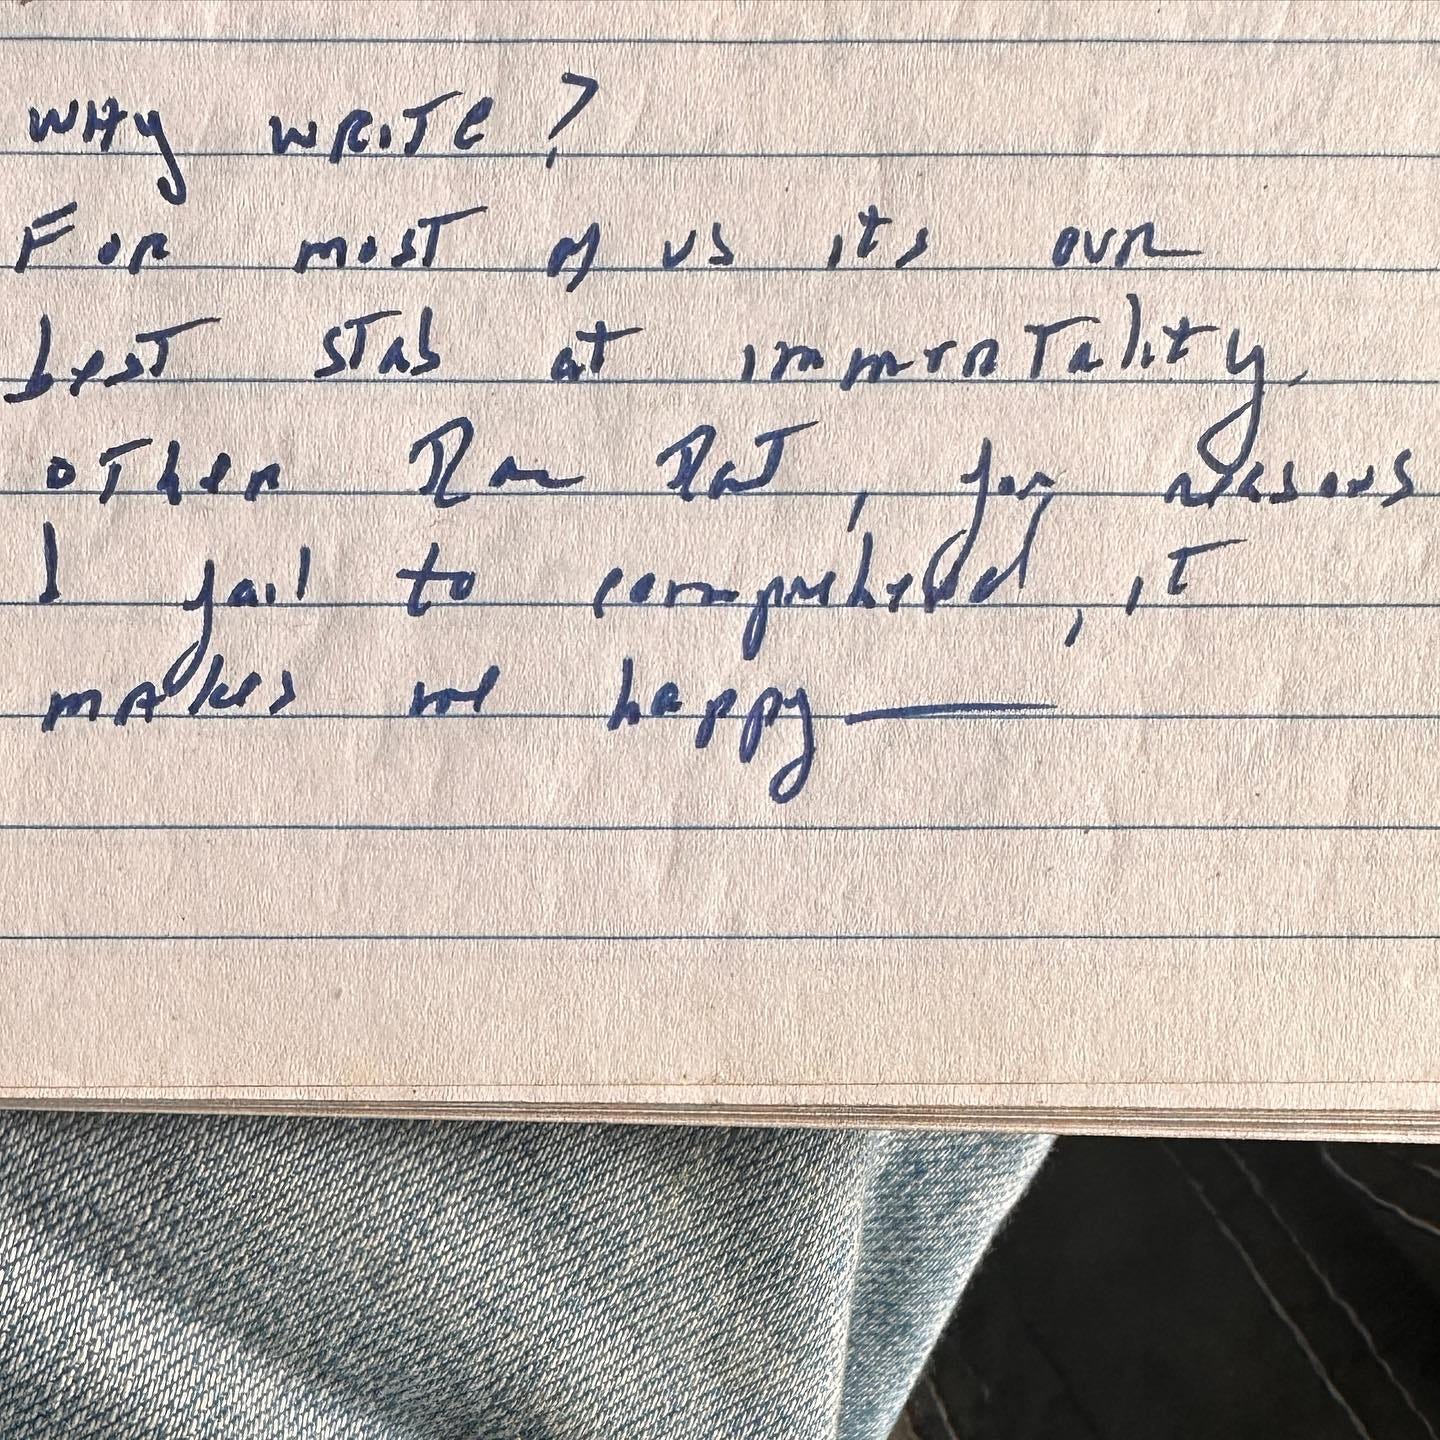 WHY WRITE?
FOR most of us its our
best stab at immortality.
other Than That, for reasons
I fail to comprehend, it
makes me happy—